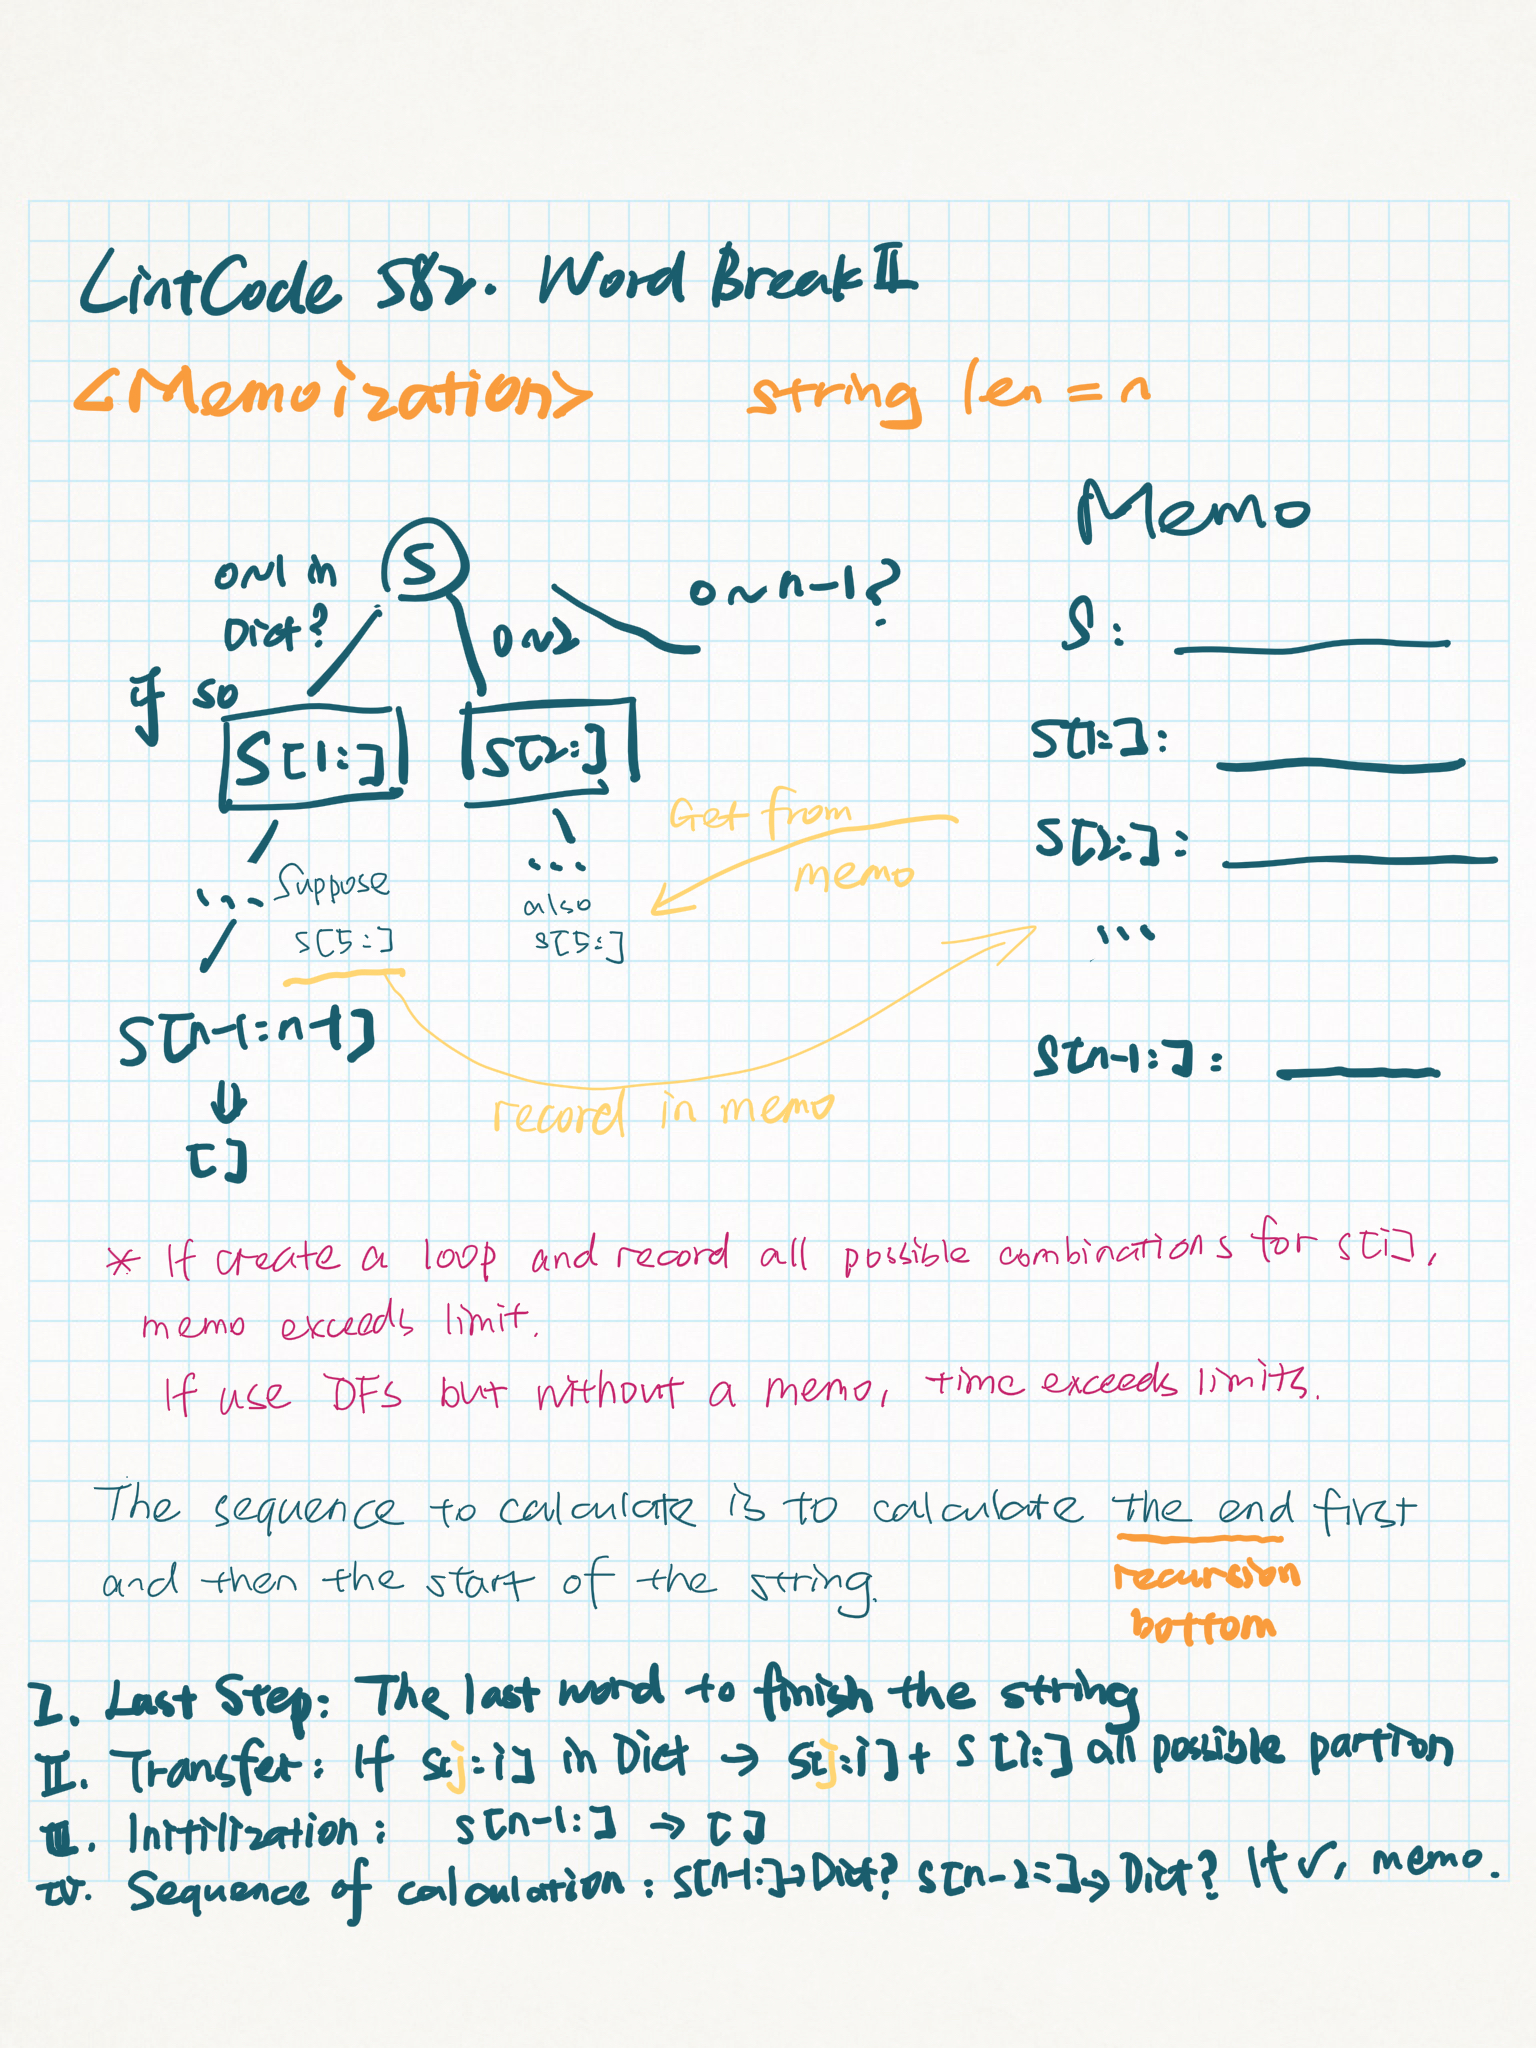 LintCode 582. Word Break II
<Memoization> string len = n
Memo
S
0~1 in
Dict?
0~2
0~n-1?
if so
S[1:]
S[2:]
S:
S[1:]:
S[2:]:
...
S[n-1:]:
Get from
memo
...
Suppose
S[5:]
...
also
S[5:]
S[n-1:n-1]
[]
record in memo
* If create a loop and record all possible combinations for s[i],
memo exceeds limit.
If use DFS but without a memo, time exceeds limits.
The sequence to calculate is to calculate the end first
and then the start of the string.
recursion
bottom
I. Last Step: The last word to finish the string
II. Transfer: If s[j:i] in Dict → s[j:i] + s[i:] all possible partion
III. Initilization: s[n-1:] → []
IV. Sequence of calculation: s[n-1:]→Dict? s[n-2:]→Dict? If √, memo.